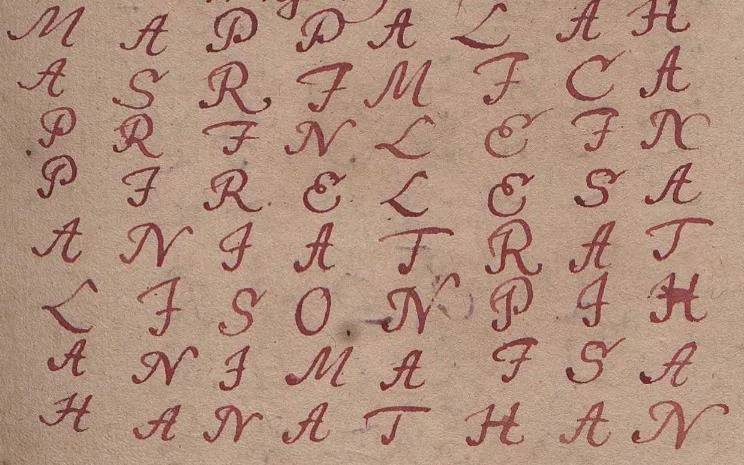 M A P P A L A H
A S R F M F C A
P R F N L E F N
P F R E L E S A
A N I A F R A T
L F S O N P I H
A N I M A F S A
H A N A T H A N